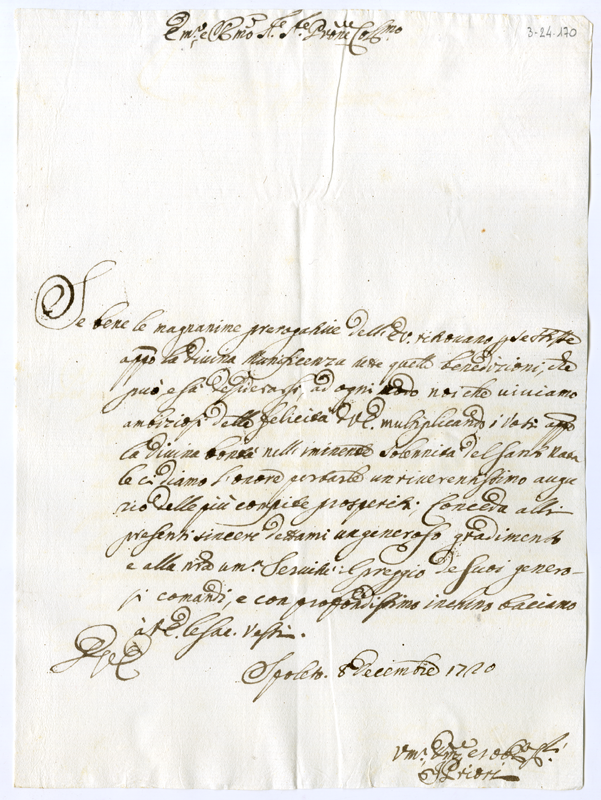 Em.o e R.mo Sig.re Sig.re Prone Col.mo
3-24-170
Se bene le magnanime prerogative dell'E.V. ritrovano per se stesse
appo la divina Munificenza tutte quelle benedizioni, che
può, e sà desiderarsi, ad ogni modo noi che viviamo
ambiziosi delle felicità d'V.E. multiplicando i voti appo
la divina bontà nelli iminente solennità del Santo Nata
le ci diamo l'onore portarle un riverentissimo augu
rio delle più compite prosperità. Conceda alli
presenti sinceri dettami un generoso gradimento
e alla nra um.e Servitù il preggio de suoi genero-
si comandi, e con profondissimo inchino bacciamo
à V.E. le Sac. Vesti.
Spoleto 8 decembre 1720
Um.i et obb.
I Priori